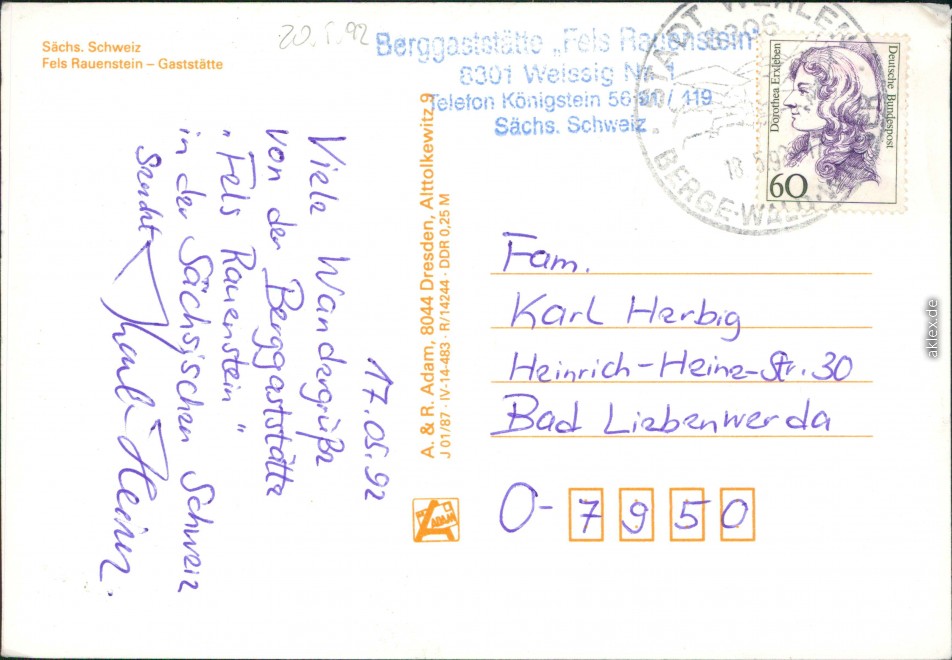 Sächs. Schweiz
Fels Rauenstein – Gaststätte
20.5.92
Berggaststätte „Fels Rauenstein"
8301 Weissig Nr. 1
Telefon Königstein 56 / 119
Sächs. Schweiz
STADT WEHLEN
8306
18.5.92
BERGE-WALD
Dorothea Erxleben
Deutsche Bundespost
60
17.05.92
Viele Wandergrüße
von der Berggaststätte
„Fels Rauenstein"
in der Sächsischen Schweiz
sendet
Karl-Heinz.
A. & R. Adam, 8044 Dresden, Alttolkewitz 9
J 01/87 · IV-14-483 · R/14244 · DDR 0,25 M
ADAM
Fam.
Karl Herbig
Heinrich-Heine-Str. 30
Bad Liebenwerda
O- 7950
aklex.de